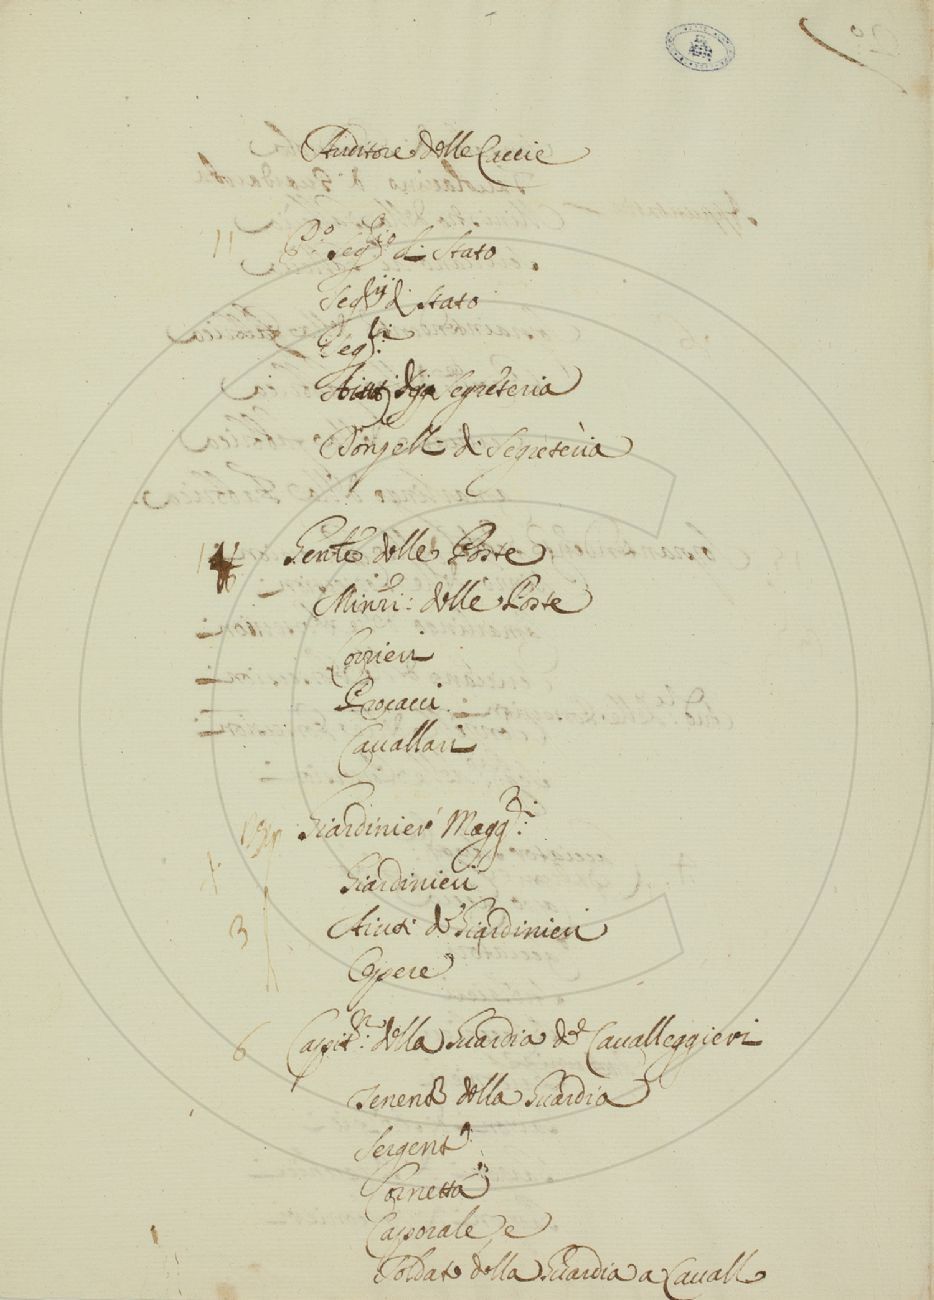 Auditore delle Caccie
11 P.o Seg.rio di Stato
Seg.rij di Stato
Seg.ri
Aiuti di Segreteria
Donzelli di Segreteria
Gen.le delle Poste
Min.ri: delle Poste
Corrieri
Procacci
Cavallari
Giardinier Magg.re:
Giardinieri
3 Aiuti de Giardinieri
Opere
6 Capit.n: della Guardia de Cavalleggieri
Tenente della Guardia
Sergente
Cornetta
Caporale, e
Soldati della Guardia a Cavallo